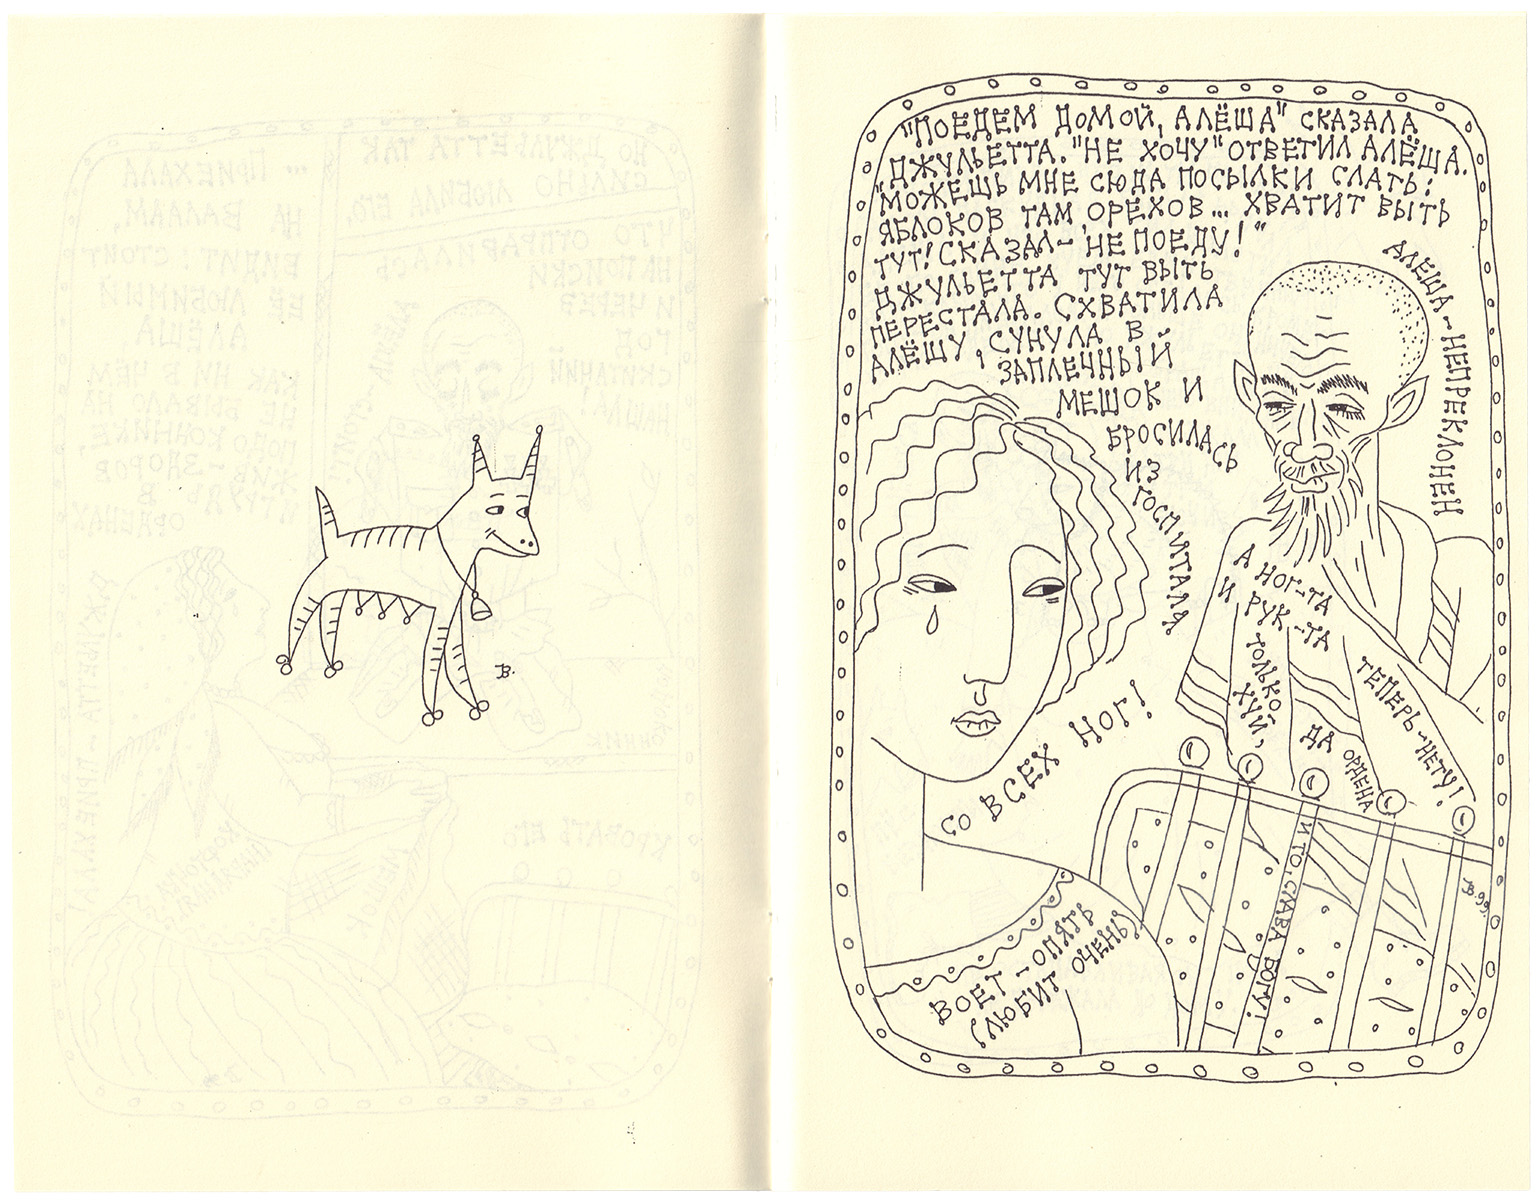 "ПОЕДЕМ ДОМОЙ, АЛЁША" СКАЗАЛА
ДЖУЛЬЕТТА. "НЕ ХОЧУ" ОТВЕТИЛ АЛЁША.
"МОЖЕШЬ МНЕ СЮДА ПОСЫЛКИ СЛАТЬ:
ЯБЛОКОВ ТАМ, ОРЕХОВ... ХВАТИТ ВЫТЬ
ТУТ! СКАЗАЛ - НЕ ПОЕДУ!"
ДЖУЛЬЕТТА ТУТ ВЫТЬ
ПЕРЕСТАЛА. СХВАТИЛА
АЛЁШУ, СУНУЛА В
ЗАПЛЕЧНЫЙ
МЕШОК И
БРОСИЛАСЬ
ИЗ
ГОСПИТАЛЯ
СО ВСЕХ НОГ!
АЛЕША - НЕПРЕКЛОНЕН
А НОГ-ТА
И РУК-ТА
ТЕПЕРЬ - НЕТУ!
ТОЛЬКО
ХУЙ,
ДА
ОРДЕНА
И ТО, СЛАВА БОГУ!
ВОЕТ - ОПЯТЬ
(ЛЮБИТ ОЧЕНЬ)
ЯВ.99г.
ЯВ.